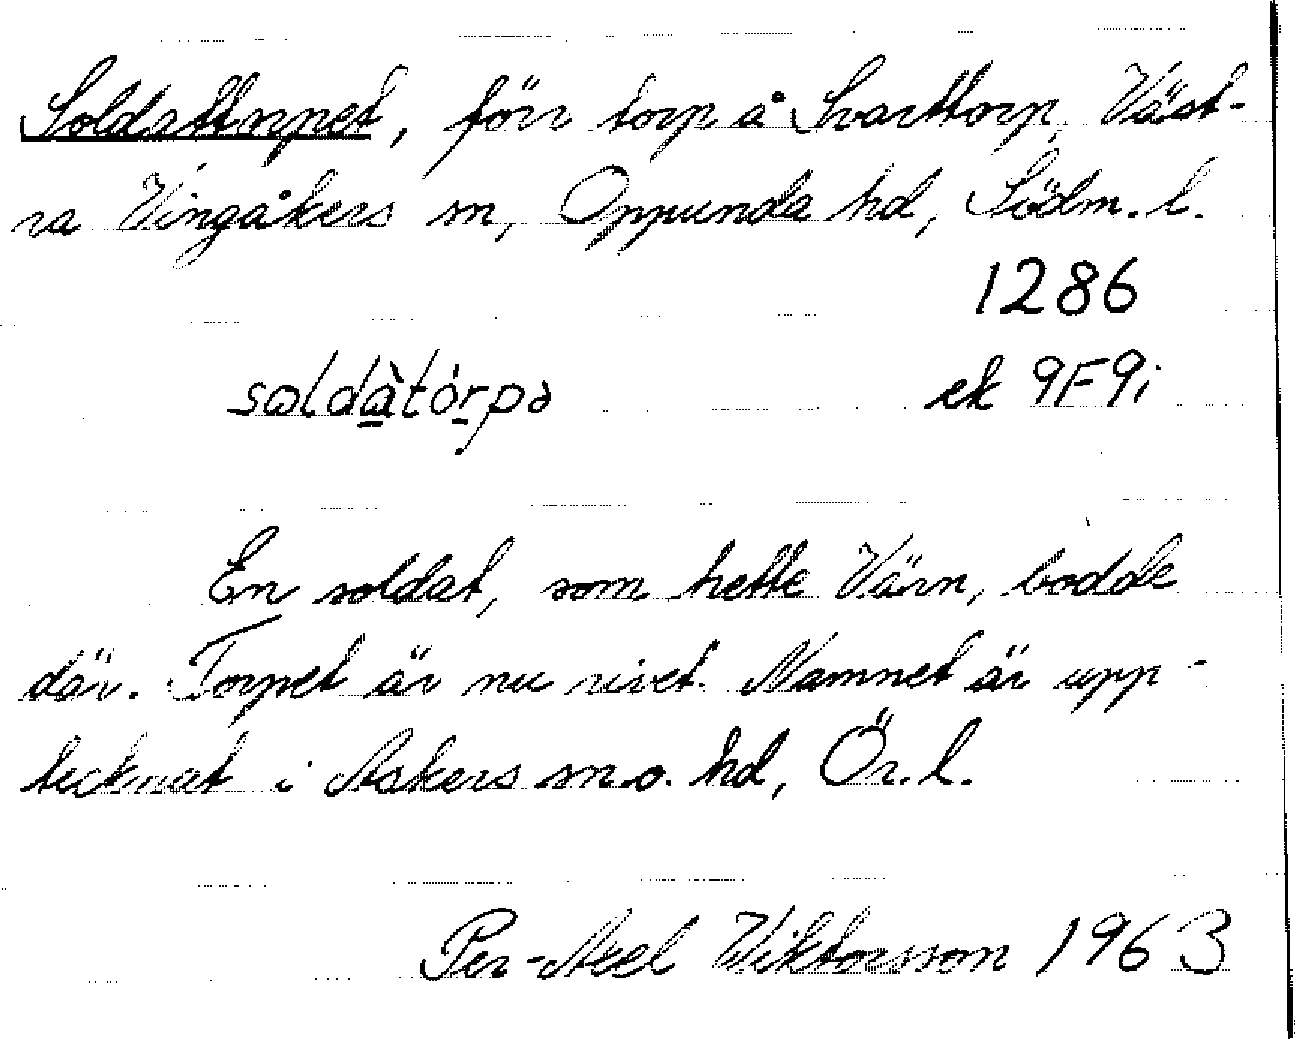 Soldattorpet, förr torp å Svarttorp, Väst-
ra Vingåkers sn, Oppunda hd, Södm. l.
1286
soldàtórpə
ek 9F9i
En soldat, som hette Värn, bodde
där. Torpet är nu rivet. Namnet är upp-
tecknat i Askers sn o. hd, Ör. l.
Per-Axel Wiktorsson 1963